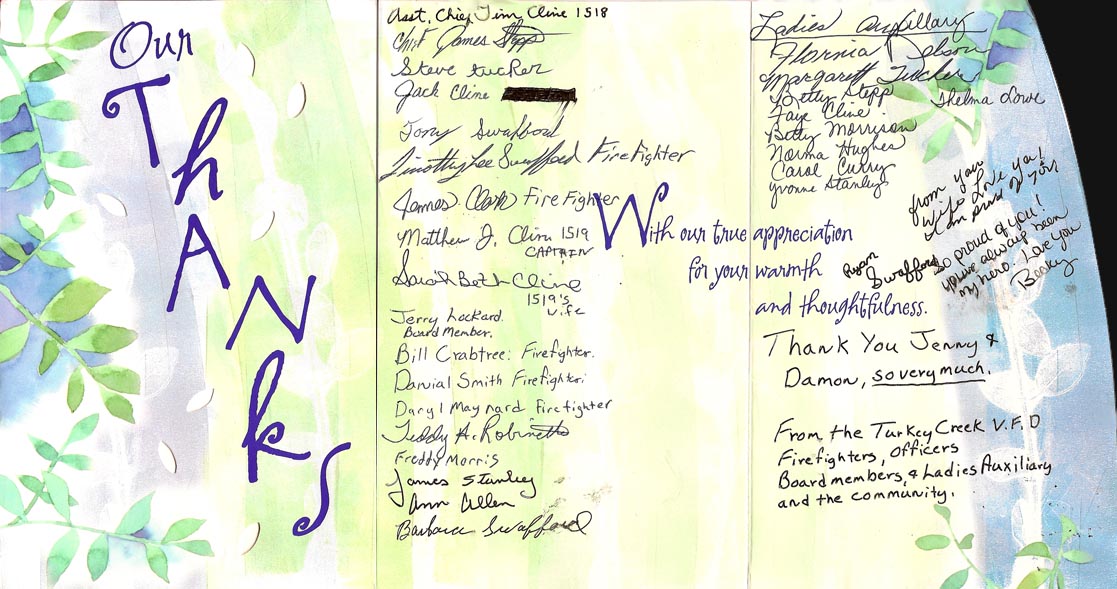 Our
THANKS
Asst. Chief Tim Cline 1518
Chief James Stepp
Steve Tucker
Jack Cline
Tony Swafford
Timothy Lee Swafford Firefighter
James Clark Fire Fighter
Matthew J. Cline 1519
CAPTAIN
Sarah Beth Cline
1519's
wife
Jerry Lockard.
Board Member.
Bill Crabtree: Firefighter.
Danial Smith Firefighter.
Daryl Maynard Firefighter
Teddy A. Robinette
Freddy Morris
James Stanley
Ann Allen
Barbara Swafford
Ladies Auxillary
Flornia Dobson
Margarett Tucker
Betty Stepp
Thelma Lowe
Faye Cline
Betty Morrison
Norma Hughes
Carol Curry
Yvonne Stanley
from your
wife Love you!
I am proud of you
With our true appreciation
for your warmth
and thoughtfulness.
Ryan
Swafford
So proud of you!
you've always been
my hero. Love you
Thank You Jenny &
Damon, so very much.
From the Turkey Creek V.F.D
Firefighters, Officers
Board members, & Ladies Auxiliary
and the community.